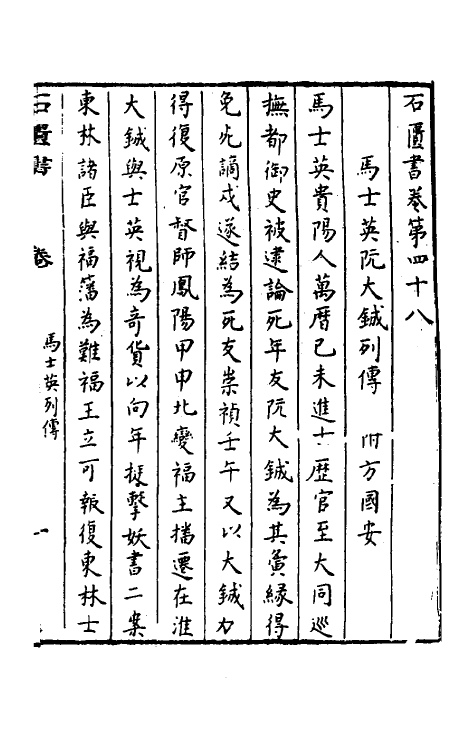 石匱書卷第四十八
馬士英阮大鋮列傳　附方國安
馬士英貴陽人萬曆己未進士歷官至大同巡
撫都御史被逮論死年友阮大鋮為其夤緣得
免死謫戍遂結為死友崇禎壬午又以大鋮力
得復原官督師鳳陽甲申北變福王播遷在淮
大鋮與士英視為奇貨以向年梃擊妖書二案
東林諸臣與福藩為難福王立可報復東林士
石匱書　卷　馬士英列傳　一